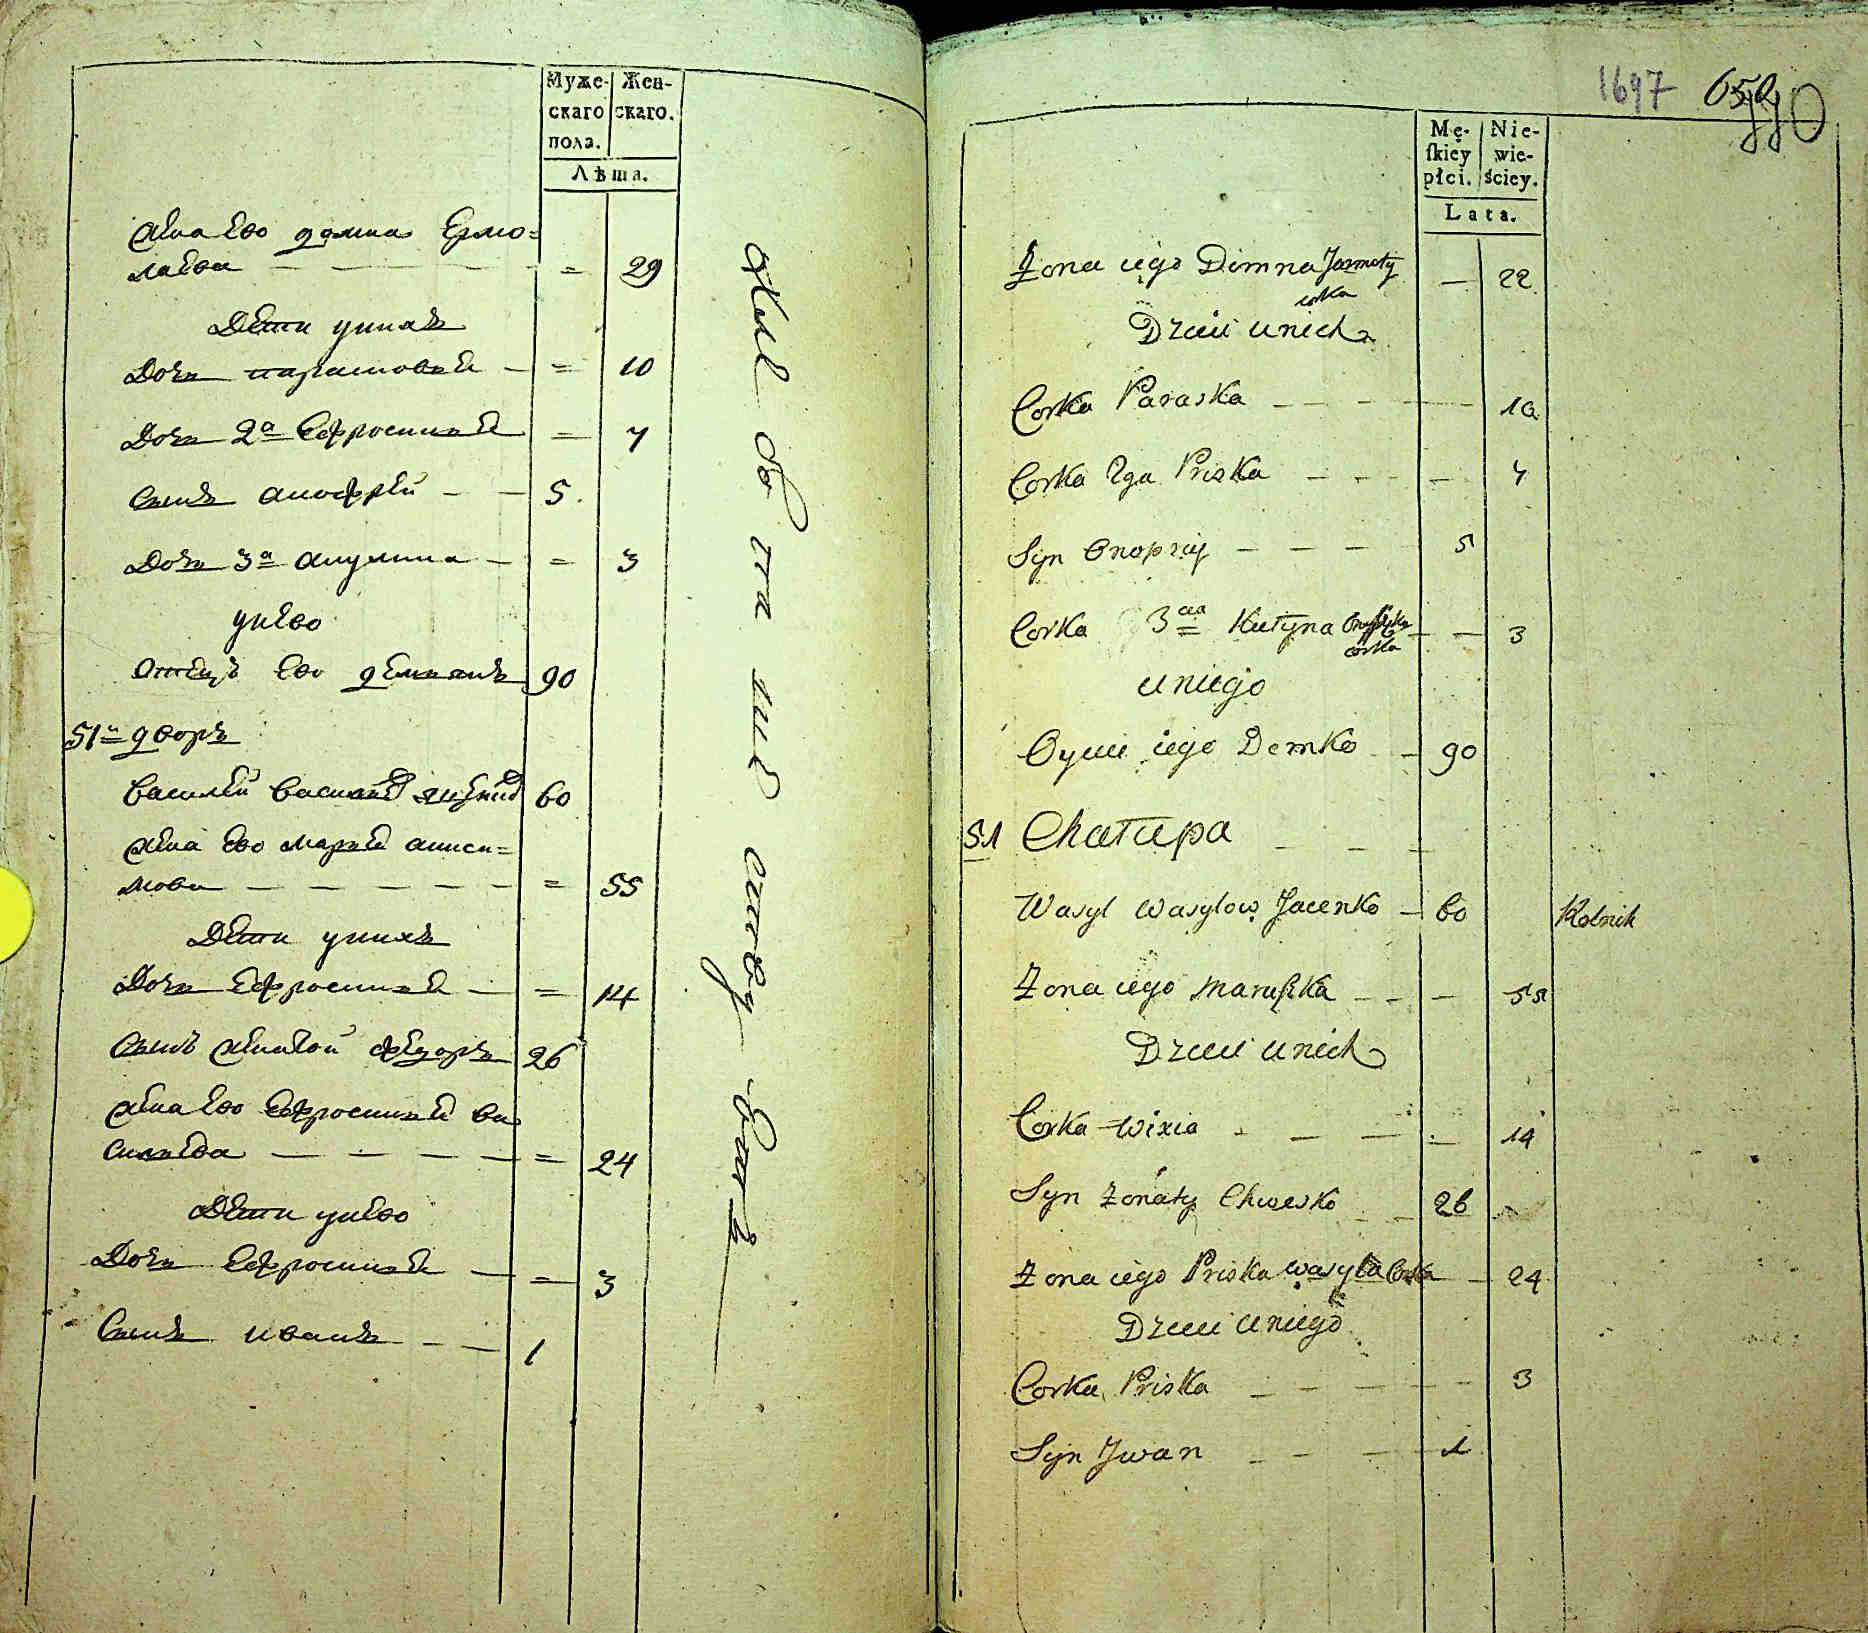 Муже- Жен-
скаго скаго.
пола.
Лѣта.
жена ево домна Ермо=
лаева = 29
Дети уних
Дочь парасковея = 10
Дочь 2я Ефросинья = 7
Сынъ анофрей 5
Дочь 3я акулина = 3
унево
отецъ ево демьянъ 90
51й дворъ
Василей Васильев яценко 60
жена ево марья аниси=
мова = 55
Дети унихъ
Дочь Ефросинья = 14
Сынъ женатой федоръ 26
жена ево Ефросинья ва
сильева = 24
Дети унево
Дочь Ефросинья = 3
Сынъ иванъ 1
1697 650
Mę- Nie-
ſkiey wie-
płci. ściey.
Lata.
Żona iego Domna Jarmoły 22
corka
Dzieci unich
Corka Paraska 10
Corka 2ga Priska 7
Syn Onopriy 5
Corka 3cia 3
corka
uniego
Oyciec iego Demko 90
51 Chałupa
Wasyl Wasylow Jacenko 60 Rolnik
Żona iego Maruſzka 55
Dzieci unich
Corka Wixia 14
Syn Żonaty Chwesko 26
Żona iego Priska Wasyla Corka 24
Dzieci uniego
Corka Priska 3
Syn Jwan 1